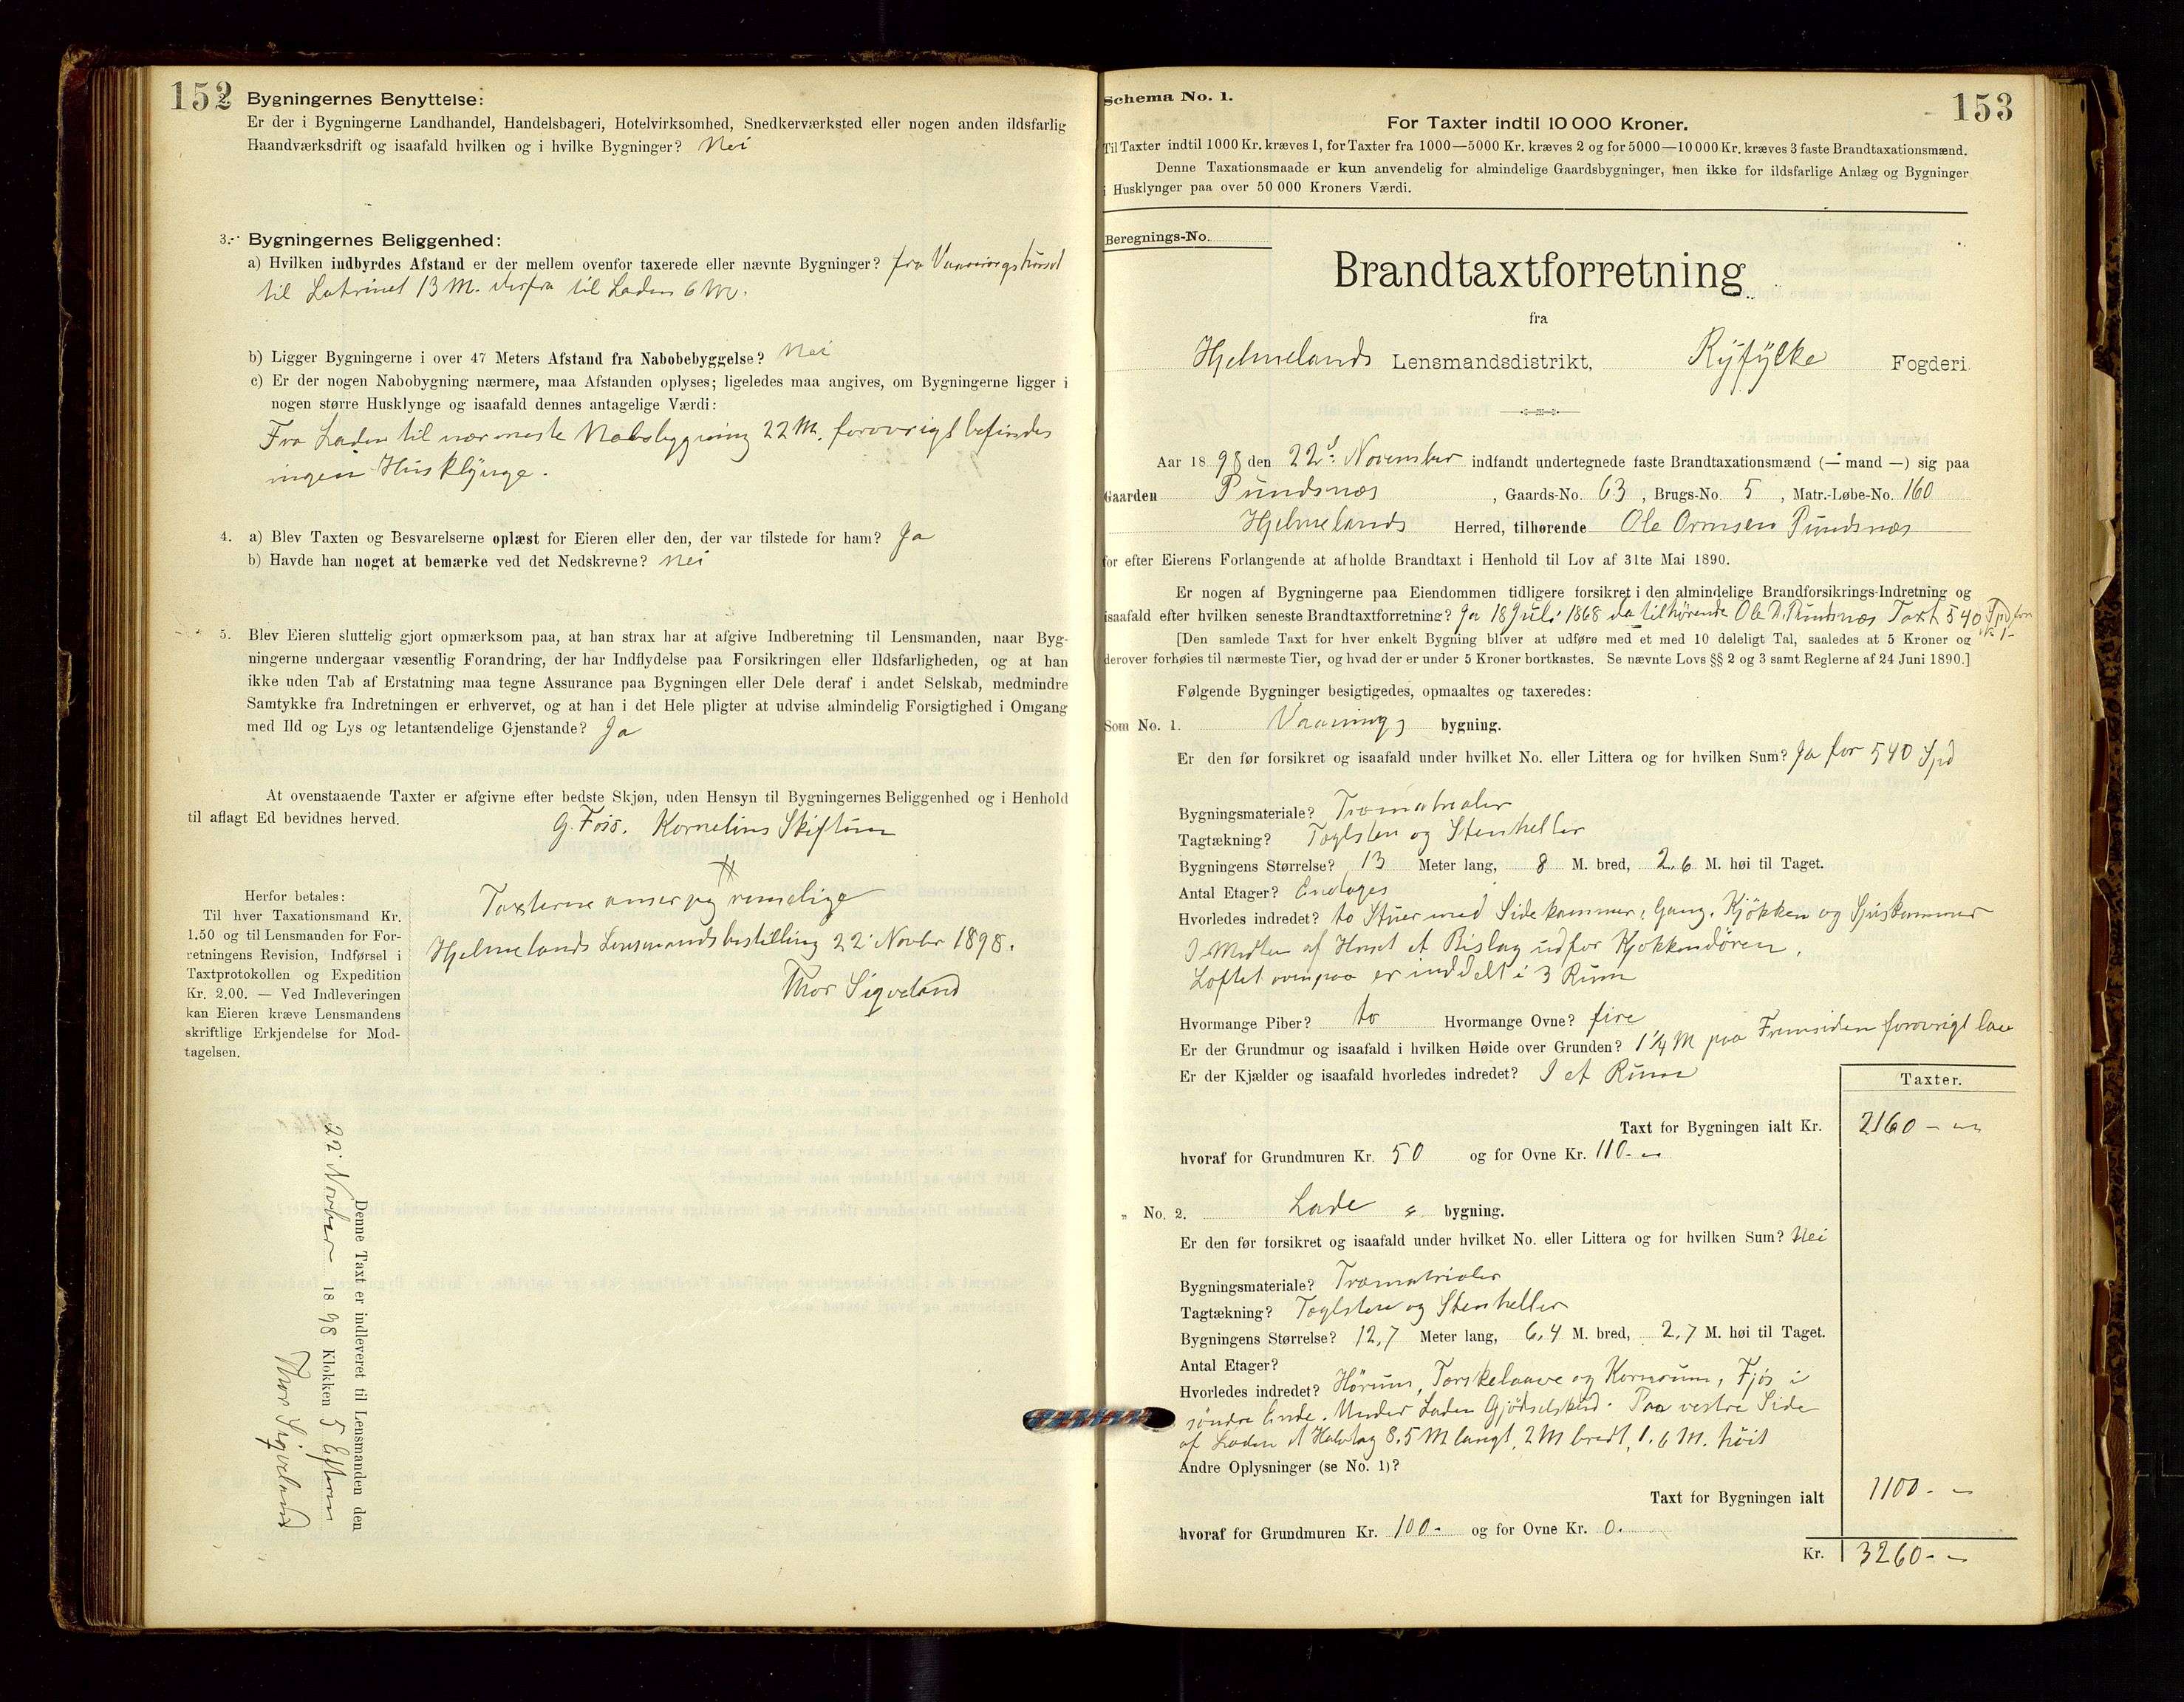 152
Bygningernes Benyttelse:
Er der i Bygningerne Landhandel, Handelsbageri, Hotelvirksomhed, Snedkerværksted eller nogen anden ildsfarlig
Haandværksdrift og isaafald hvilken og i hvilke Bygninger? Nei
3. Bygningernes Beliggenhed:
a) Hvilken indbyrdes Afstand er der mellem ovenfor taxerede eller nævnte Bygninger? fra Vaaningshuset
til Latrinet 13 M. derfra til Laden 6 M.
b) Ligger Bygningerne i over 47 Meters Afstand fra Nabobebyggelse? Nei
c) Er der nogen Nabobygning nærmere, maa Afstanden oplyses; ligeledes maa angives, om Bygningerne ligger i
nogen større Husklynge og isaafald dennes antagelige Værdi:
Fra Laden til nærmeste Nabobygning 22 M. forøvrigt befindes
ingen Husklynge.
4. a) Blev Taxten og Besvarelserne oplæst for Eieren eller den, der var tilstede for ham? Ja
b) Havde han noget at bemærke ved det Nedskrevne? Nei
5. Blev Eieren sluttelig gjort opmærksom paa, at han strax har at afgive Indberetning til Lensmanden, naar Byg-
ningerne undergaar væsentlig Forandring, der har Indflydelse paa Forsikringen eller Ildsfarligheden, og at han
ikke uden Tab af Erstatning maa tegne Assurance paa Bygningen eller Dele deraf i andet Selskab, medmindre
Samtykke fra Indretningen er erhvervet, og at han i det Hele pligter at udvise almindelig Forsigtighed i Omgang
med Ild og Lys og letantændelige Gjenstande? Ja
At ovenstaaende Taxter er afgivne efter bedste Skjøn, uden Hensyn til Bygningernes Beliggenhed og i Henhold
til aflagt Ed bevidnes herved.
G. Kornelius Skiftun
Herfor betales:
Til hver Taxationsmand Kr.
1.50 og til Lensmanden for For-
retningens Revision, Indførsel i
Taxtprotokollen og Expedition
Kr. 2.00. — Ved Indleveringen
kan Eieren kræve Lensmandens
skriftlige Erkjendelse for Mod-
tagelsen.
Taxterne anser jeg rimelige
Hjelmelands Lensmandsbestilling 22 Novbr 1898.
Thor Sigveland
Denne Taxt er indleveret til Lensmanden den
22 November 1898 Klokken 5 Efterm
Thor Sigveland
153
Schema No. 1.
For Taxter indtil 10 000 Kroner.
Til Taxter indtil 1000 Kr. kræves 1, for Taxter fra 1000—5000 Kr. kræves 2 og for 5000—10 000 Kr. kræves 3 faste Brandtaxationsmænd.
Denne Taxationsmaade er kun anvendelig for almindelige Gaardsbygninger, men ikke for ildsfarlige Anlæg og Bygninger
i Husklynger paa over 50 000 Kroners Værdi.
Beregnings-No.
Brandtaxtforretning
fra
Hjelmelands Lensmandsdistrikt, Ryfylke Fogderi.
Aar 1898 den 22d November indfandt undertegnede faste Brandtaxationsmænd (— mand —) sig paa
Gaarden Pundsnæs, Gaards-No. 63, Brugs-No. 5, Matr.-Løbe-No. 160
Hjelmelands Herred, tilhørende Ole Ormsen Pundsnæs
for efter Eierens Forlangende at afholde Brandtaxt i Henhold til Lov af 31te Mai 1890.
Er nogen af Bygningerne paa Eiendommen tidligere forsikret i den almindelige Brandforsikrings-Indretning og
isaafald efter hvilken seneste Brandtaxtforretning? Ja 18 Juli 1868 da tilhørende Ole Pundsnæs Taxt 540 Spd for
No 1
[Den samlede Taxt for hver enkelt Bygning bliver at udføre med et med 10 deleligt Tal, saaledes at 5 Kroner og
derover forhøies til nærmeste Tier, og hvad der er under 5 Kroner bortkastes. Se nævnte Lovs §§ 2 og 3 samt Reglerne af 24 Juni 1890.]
Følgende Bygninger besigtigedes, opmaaltes og taxeredes:
Som No. 1. Vaanings bygning.
Er den før forsikret og isaafald under hvilket No. eller Littera og for hvilken Sum? Ja for 540 Spd
Bygningsmateriale? Træmatrialer
Tagtækning? Taglsten og Stenheller
Bygningens Størrelse? 13 Meter lang, 8 M. bred, 2,6 M. høi til Taget.
Antal Etager? Enetages
Hvorledes indredet? to Stuer med Sidekammer, Gang, Kjøkken og Spiskammer
I Midten af Huset et Bislag udfor Kjøkkendøren.
Loftet ovenpaa er inddelt i 3 Rum
Hvormange Piber? to Hvormange Ovne? fire
Er der Grundmur og isaafald i hvilken Høide over Grunden? 1 1/4 M paa Fremsiden forøvrigt lav
Er der Kjælder og isaafald hvorledes indredet? I et Rum
Taxter.
Taxt for Bygningen ialt Kr. 2160 -
hvoraf for Grundmuren Kr. 50 og for Ovne Kr. 110 -
" No. 2. Lade bygning.
Er den før forsikret og isaafald under hvilket No. eller Littera og for hvilken Sum? Nei
Bygningsmateriale? Træmatrialer
Tagtækning? Taglsten og Stenheller
Bygningens Størrelse? 12,7 Meter lang, 6,4 M. bred, 2,7 M. høi til Taget.
Antal Etager?
Hvorledes indredet? Hørum, Tærskelaave og Kornrum, Fjøs i
søndre Ende. Under Laden Gjødselskud. Paa vestre Side
af Laden et Halvtag 8,5 M langt, 2 M bredt, 1,6 M. høit
Andre Oplysninger (se No. 1)?
Taxt for Bygningen ialt 1100 -
hvoraf for Grundmuren Kr. 100 - og for Ovne Kr. 0.
Kr. 3260 -